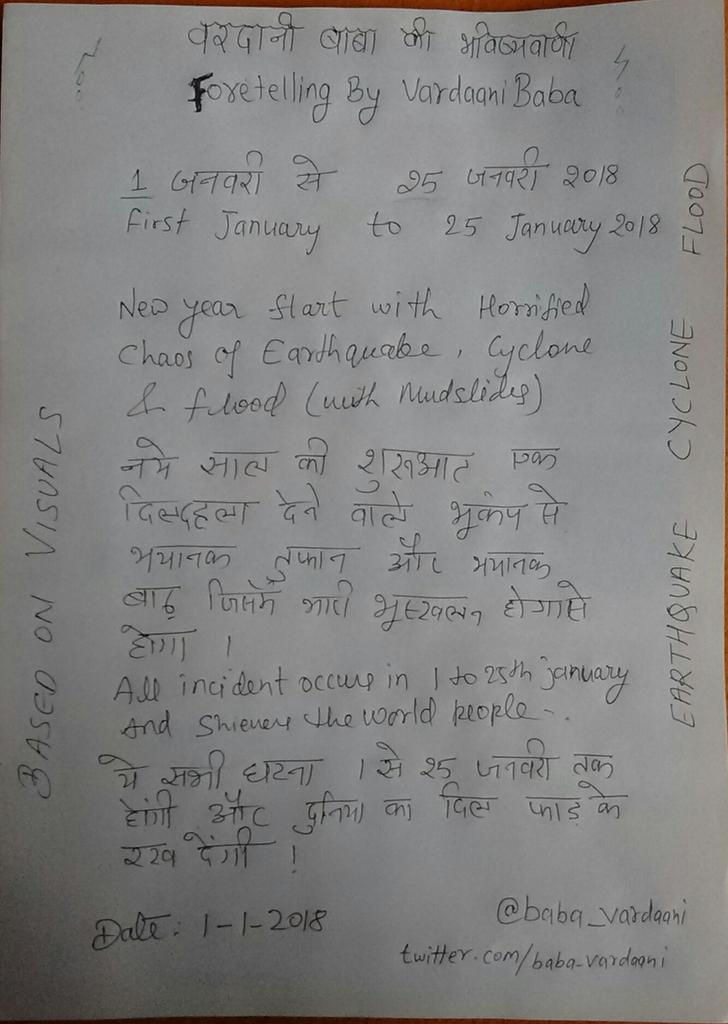 वरदानी बाबा की भविष्यवाणी
Foretelling By Vardaani Baba
1 जनवरी से 25 जनवरी 2018
First January to 25 January 2018
New year start with Horrified
Chaos of Earthquake, Cyclone
& flood (with Mudslides)
नये साल की शुरुआत एक
दिलदहला देने वाले भूकंप से
भयानक तुफान और भयानक
बाढ़ जिसमें भारी भूस्खलन होगासे
होगा ।
All incident occurs in 1 to 25th january
And the world people -.
ये सभी घटना 1 से 25 जनवरी तक
होंगी और दुनिया का दिल फाड़ के
रख देंगी !
Date: 1-1-2018
@baba_vardaani
twitter.com/baba_vardaani
BASED ON VISUALS
EARTHQUAKE CYCLONE FLOOD